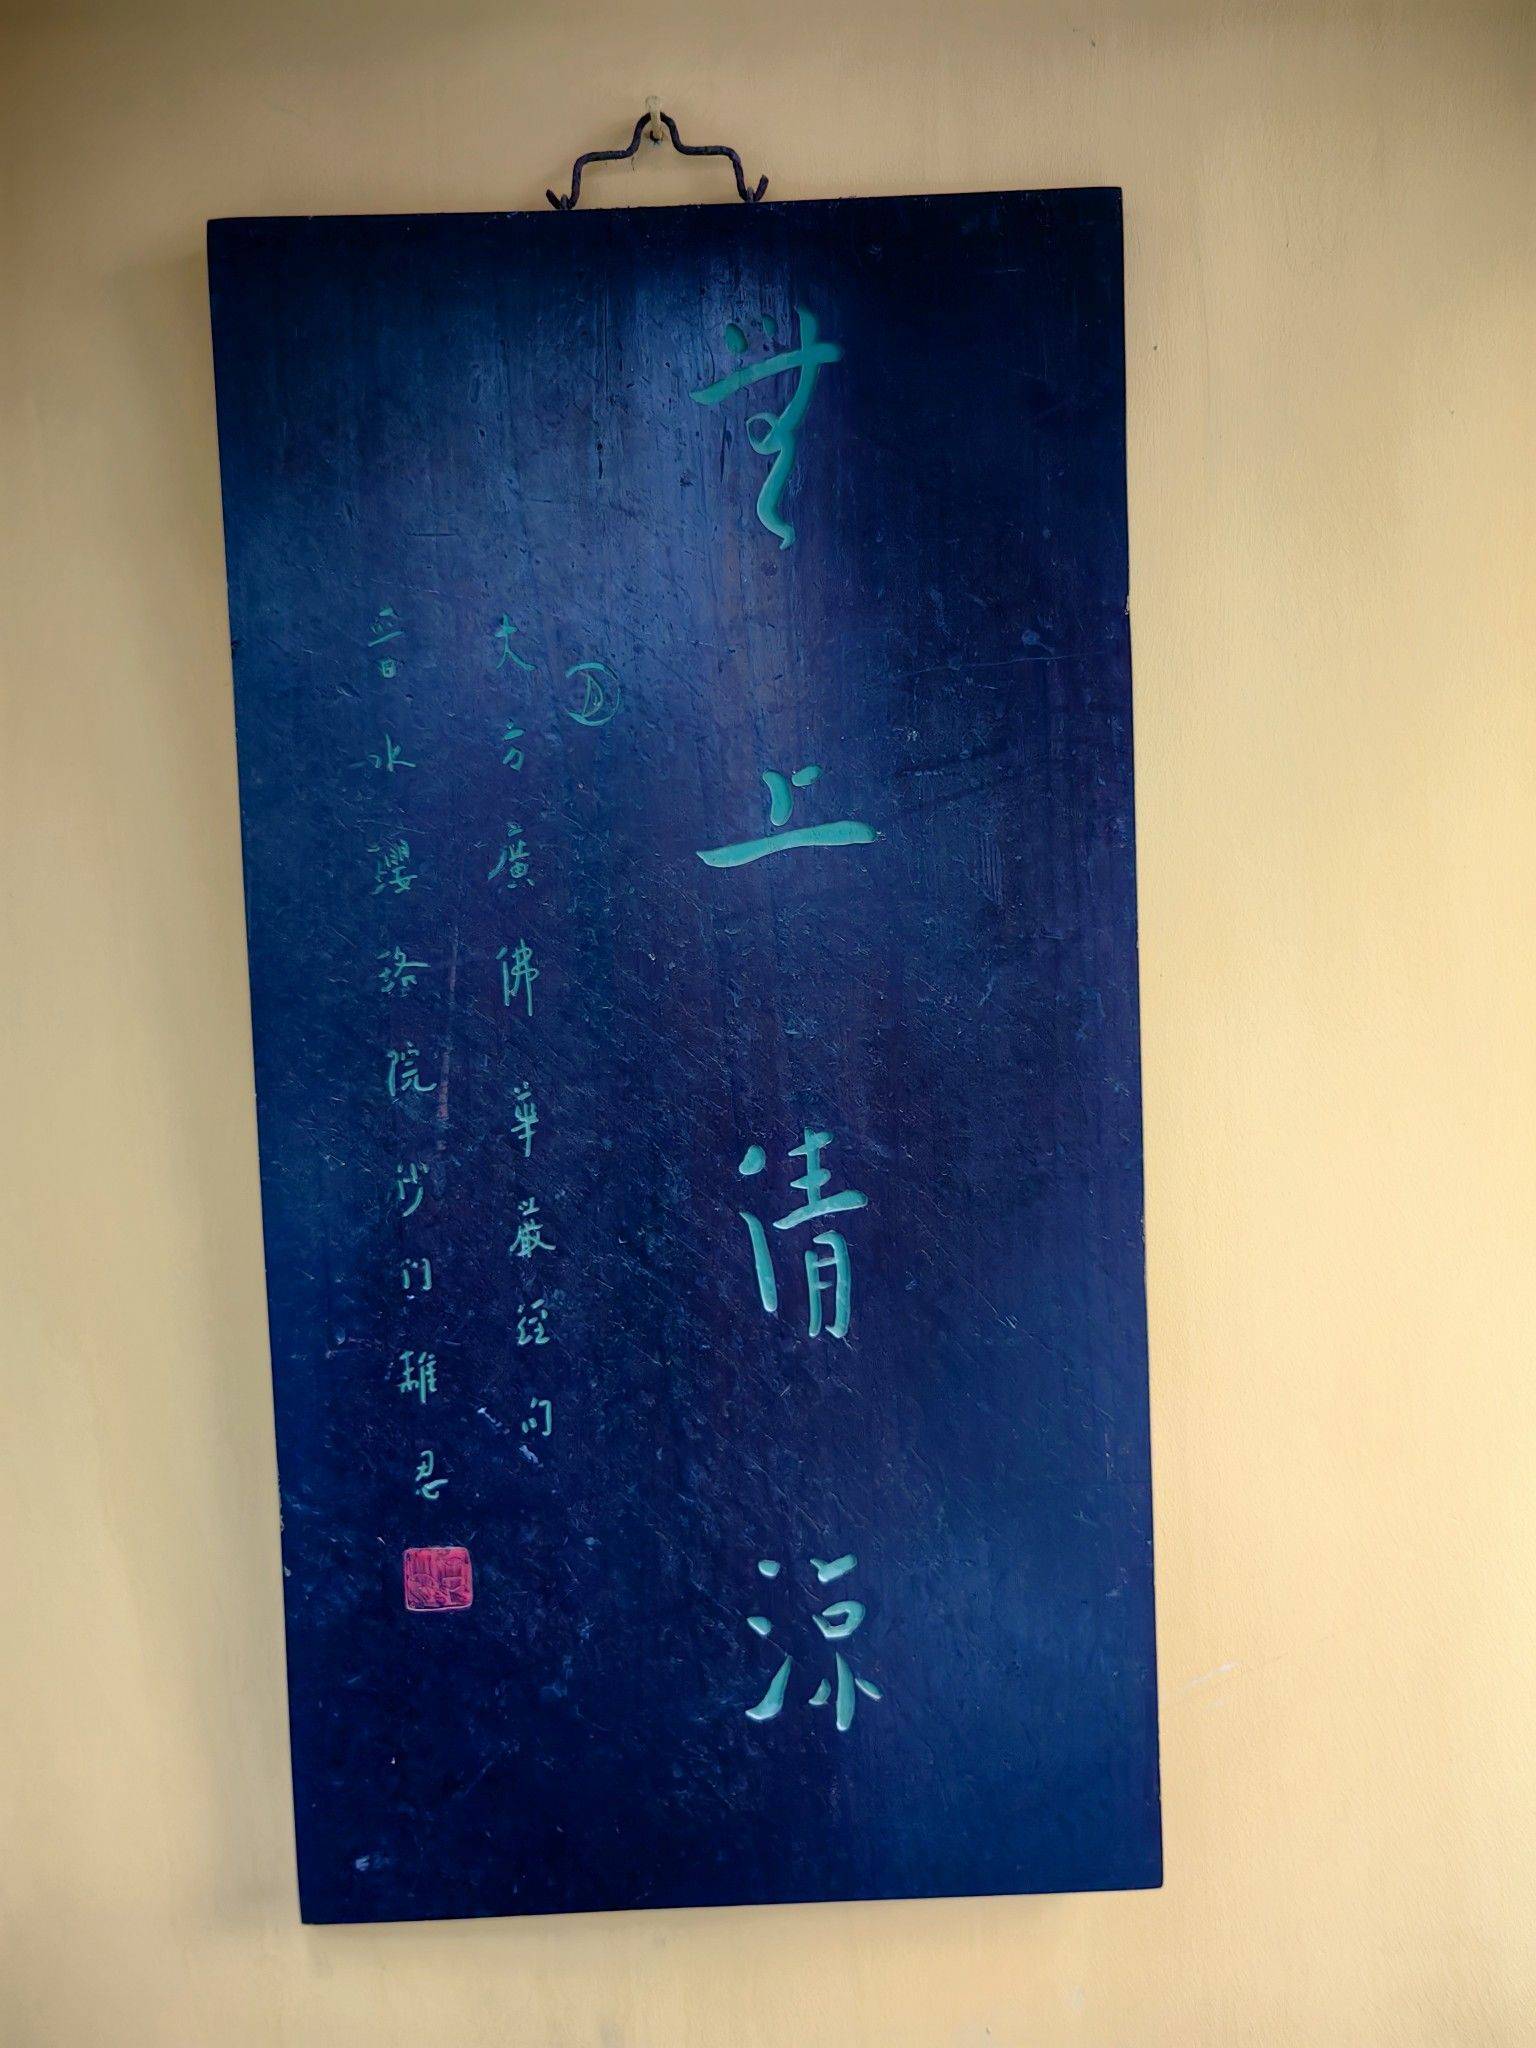 無上清涼
大方廣佛華嚴經句
晉水瓔珞院沙門離忍